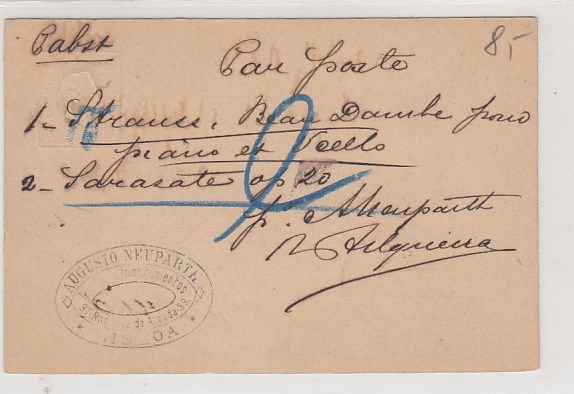 Pabst
85,-
Par poste
1- Strauss, Beau Danube pour
piano et Vcello
2- Sarasate op 20
p. A Neuparth
AUGUSTO NEUPARTH
Instrumentos
LISBOA